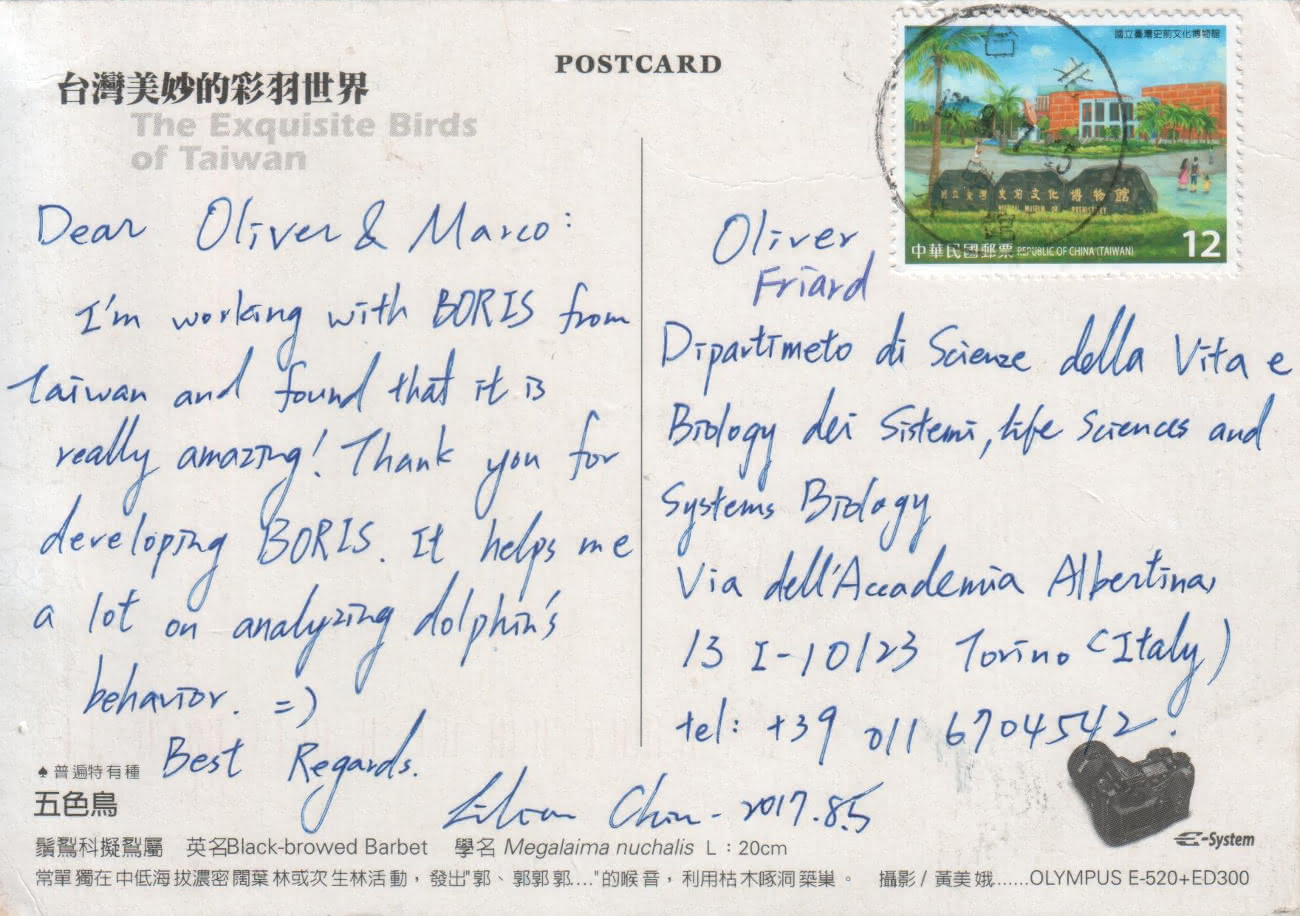 POSTCARD
台灣美妙的彩羽世界
The Exquisite Birds
of Taiwan
國立臺灣史前文化博物館
國立臺灣史前文化博物館
NATIONAL MUSEUM OF PREHISTORY
中華民國郵票 REPUBLIC OF CHINA (TAIWAN) 12
Dear Oliver & Marco:
I'm working with BORIS from
Taiwan and found that it is
really amazing! Thank you for
developing BORIS. It helps me
a lot on analyzing dolphin's
behavior. =)
Best Regards.
2017.8.5
Oliver
Friard
Dipartimeto di Scienze della Vita e
Biology dei Sistemi, life Sciences and
Systems Biology
Via dell'Accademia Albertina,
13 I-10123 Torino (Italy)
tel: +39 011 6704542.
♠普遍特有種
五色鳥
鬚鴷科擬鴷屬 英名Black-browed Barbet 學名 Megalaima nuchalis L：20cm
常單獨在中低海拔濃密闊葉林或次生林活動，發出"郭、郭郭郭...."的喉音，利用枯木啄洞築巢。 攝影/黃美娥......OLYMPUS E-520+ED300
E-System